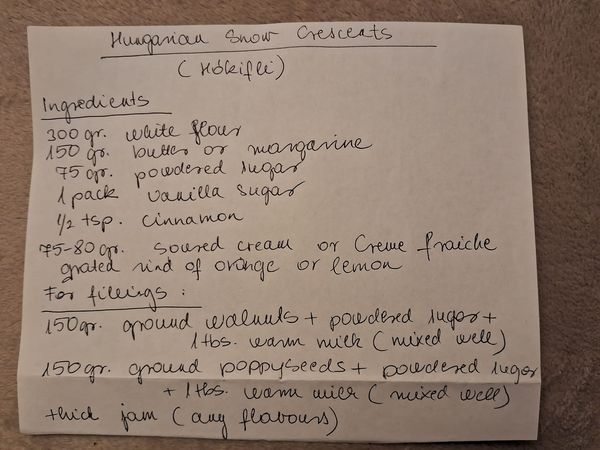 Hungarian Snow Crescents
(Hókifli)
Ingredients
300 gr. white flour
150 gr. butter or margarine
75 gr. powdered sugar
1 pack vanilla sugar
1/2 tsp. cinnamon
75-80 gr. soured cream or Creme fraiche
grated rind of orange or lemon
For fillings :
150gr. ground walnuts + powdered sugar +
1 tbs. warm milk (mixed well)
150gr. ground poppyseeds + powdered sugar
+ 1 tbs. warm milk (mixed well)
thick jam (any flavours)